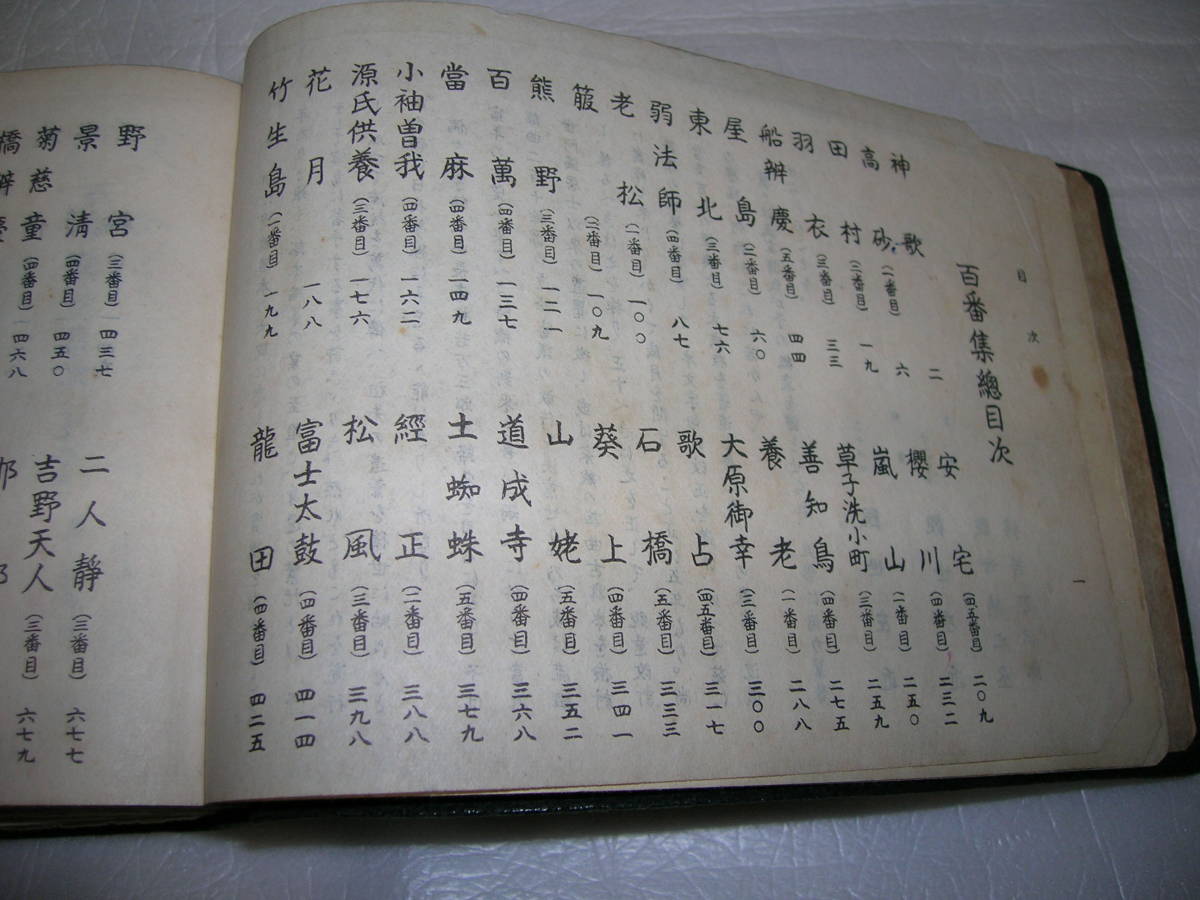 目次
百番集總目次
神歌 二
高砂 (一番目) 六
田村 (二番目) 一九
羽衣 (三番目) 三三
船辨慶 (五番目) 四四
屋島 (二番目) 六〇
東北 (三番目) 七六
弱法師 (四番目) 八七
老松 (一番目) 一〇〇
箙 (二番目) 一〇九
熊野 (三番目) 一二一
百萬 (四番目) 一三七
當麻 (四番目) 一四九
小袖曽我 (四番目) 一六二
源氏供養 (三番目) 一七六
花月 一八八
竹生島 (一番目) 一九九
安宅 (四、五番目) 二〇九
櫻川 (四番目) 二三二
嵐山 (一番目) 二五〇
草子洗小町 (三番目) 二五九
善知鳥 (四番目) 二七五
養老 (一番目) 二八八
大原御幸 (三番目) 三〇〇
歌占 (四、五番目) 三一七
石橋 (五番目) 三三三
葵上 (四番目) 三四一
山姥 (五番目) 三五二
道成寺 (四番目) 三六八
土蜘蛛 (五番目) 三七九
經正 (二番目) 三八八
松風 (三番目) 三九八
富士太鼓 (四番目) 四一四
龍田 (四番目) 四二五
一
野宮 (三番目) 四三七
景清 (四番目) 四五〇
菊慈童 (四番目) 四六八
橋辨慶
二人靜 (三番目) 六七七
吉野天人 (三番目) 六七九